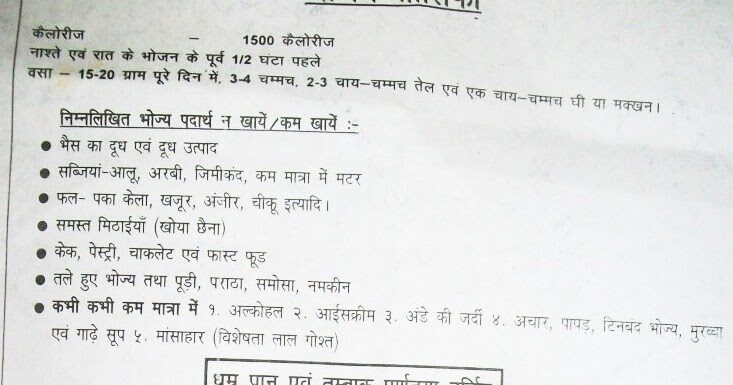 कैलोरीज – 1500 कैलोरीज
नाश्ते एवं रात के भोजन के पूर्व 1/2 घंटा पहले
वसा – 15-20 ग्राम पूरे दिन में, 3-4 चम्मच, 2-3 चाय–चम्मच तेल एवं एक चाय–चम्मच घी या मक्खन।
निम्नलिखित भोज्य पदार्थ न खायें/कम खायें :-
● भैस का दूध एवं दूध उत्पाद
● सब्जियां-आलू, अरबी, जिमीकंद, कम मात्रा में मटर
● फल- पका केला, खजूर, अंजीर, चीकू इत्यादि।
● समस्त मिठाईयाँ (खोया छैना)
● केक, पेस्ट्री, चाकलेट एवं फास्ट फूड
● तले हुए भोज्य तथा पूड़ी, पराठा, समोसा, नमकीन
● कभी कभी कम मात्रा में १. अल्कोहल २. आईसक्रीम ३. अंडे की जर्दी ४. अचार, पापड़, टिनबंद भोज्य, मुरब्बा
एवं गाढ़े सूप ५. मांसाहार (विशेषता लाल गोश्त)